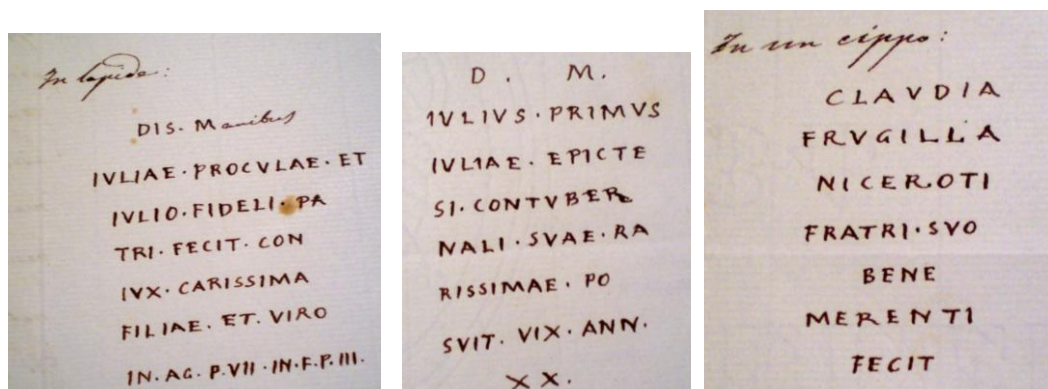 In lapide:
DIS. Manibus
IVLIAE. PROCVLAE. ET
IVLIO. FIDELI. PA
TRI. FECIT. CON
IVX. CARISSIMA
FILIAE. ET. VIRO
IN. AG. P. VII. IN. F. P. III.
D. M.
IVLIVS. PRIMVS
IVLIAE. EPICTE
SI. CONTVBER
NALI. SVAE. RA
RISSIMAE. PO
SVIT. VIX. ANN.
XX.
In un cippo:
CLAVDIA
FRVGILLA
NICEROTI
FRATRI. SVO
BENE
MERENTI
FECIT